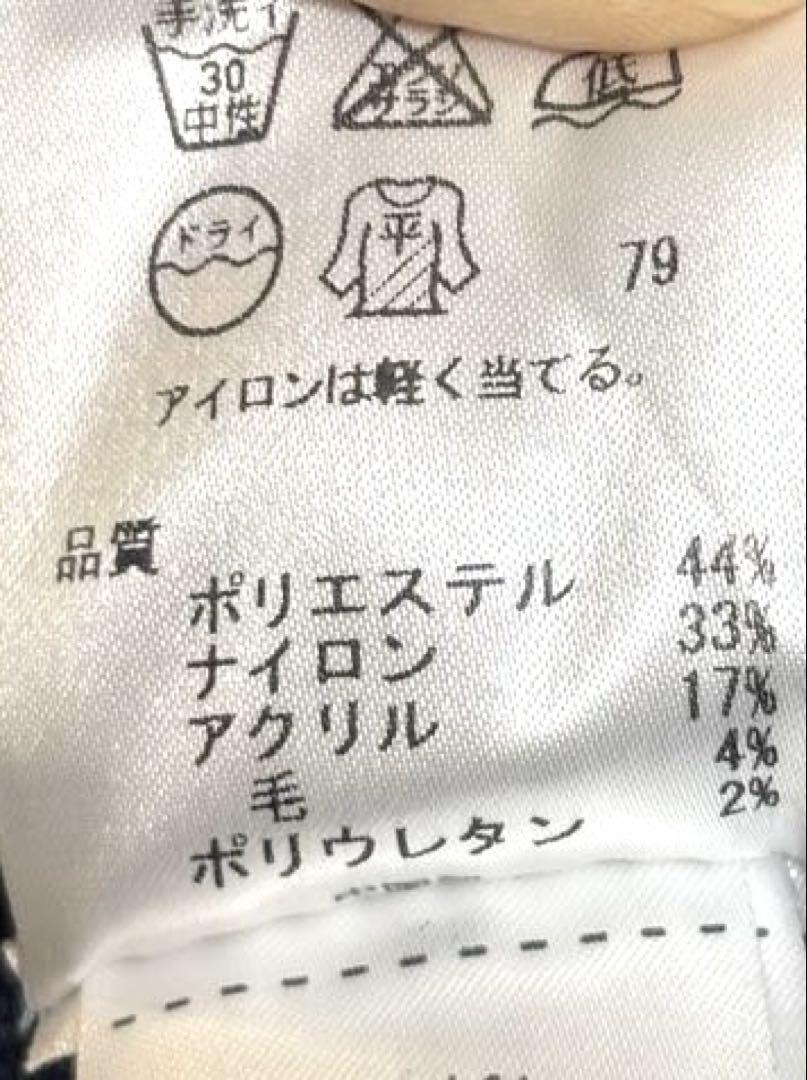 手洗イ
30
中性
エンソ
サラシ
低
ドライ
平
79
アイロンは軽く当てる。
品質
ポリエステル 44%
ナイロン 33%
アクリル 17%
毛 4%
ポリウレタン 2%